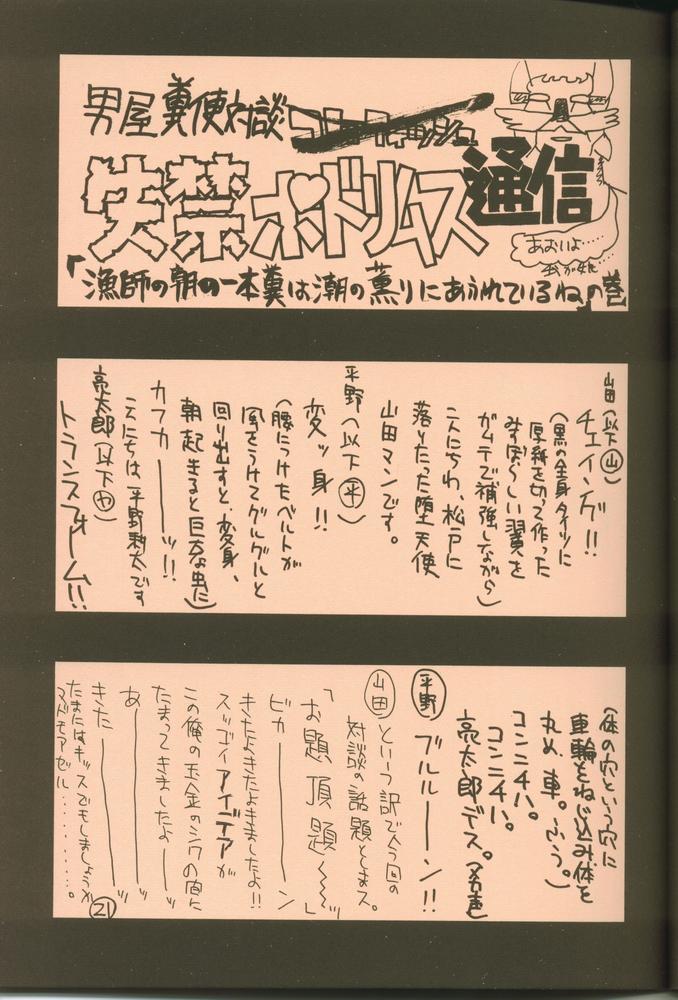 男屋糞便対談
失禁ボドリムス通信
あおいよ……
我が娘…
「漁師の朝の一本糞は潮の薫りにあふれているね」の巻
山田(以下山)
チェインヂ!!
(黒の全身タイツに
厚紙を切って作った
みすぼらしい翼を
ガムテで補強しながら)
こんにちわ、松戸に
落りたった堕天使
山田マンです。
平野(以下平)
変ッ身!!
(腰につけたベルトが
風をうけてグルグルと
回り出すと、変身、
朝起きると巨大な虫に)
カフカーーーッ!!
こんにちは、平野利太です
亮太郎(以下ヤ)
トランスフォーム!!
(体の穴という穴に
車輪をねじ込み体を
丸め、車。ふう。)
コンニチハ。
コンニチハ。
亮太郎デス。
平野 ブルルーーン!!
山田 という訳で今回の
対談の話題とします。
「お題頂題〜〜」
ビカーーーン
きたよきたよきましたよ!!
スッゴイアイデアが
この俺の玉金のシワの間に
たまってきましたよーーッ
あーーーッ
きたーーーッ
たまにはキッスでもしましょうか
マドモアゼル………。
21